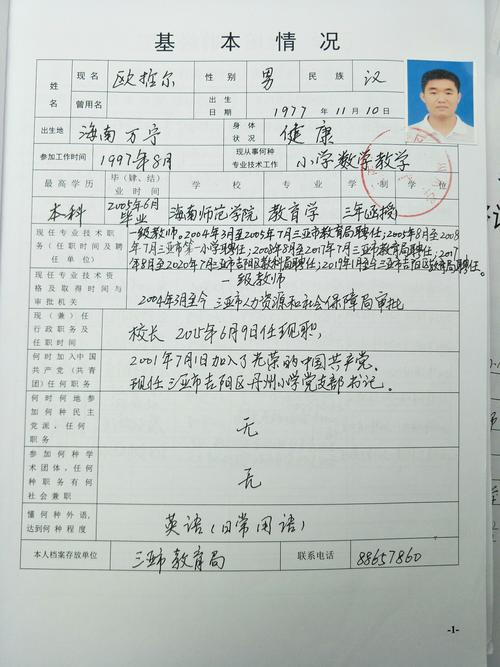 基本情况
姓名 现名 欧拉尔 性别 男 民族 汉
曾用名 出生日期 1977年11月10日
出生地 海南万宁 身体状况 健康
参加工作时间 1997年8月 现从事何种专业技术工作 小学数学教学
最高学历 毕(肄、结)业时间 学校 专业 学制 学位
本科 2005年6月毕业 海南师范学院 教育学 三年函授
现任专业技术职务(任职时间及聘任单位) 一级教师。2004年3月至2005年7月三亚市教育局聘任;2005年8月至2008
年7月三亚市第一小学聘任;2008年8月至2017年7月三亚市教育局聘任;2017
年8月至2020年7月三亚市吉阳区教科局聘任;2019年1月至今三亚市吉阳区教育局聘任。
现任专业技术资格及取得时间与审批机关 一级教师
2004年3月至今 三亚市人力资源和社会保障局审批
现(兼)任行政职务及任职时间 校长 2015年6月9日任现职,
何时加入中国共产党(共青团)任何职务 2001年7月1日加入了光荣的中国共产党。
现任三亚市吉阳区丹州小学党支部书记。
何时何地参加何种民主党派,任何职务 无
参加何种学术团体,任何种职务有何社会兼职 无
懂何种外语,达到何种程度 英语(日常用语)
本人档案存放单位 三亚市教育局 联系电话 88657860
-1-